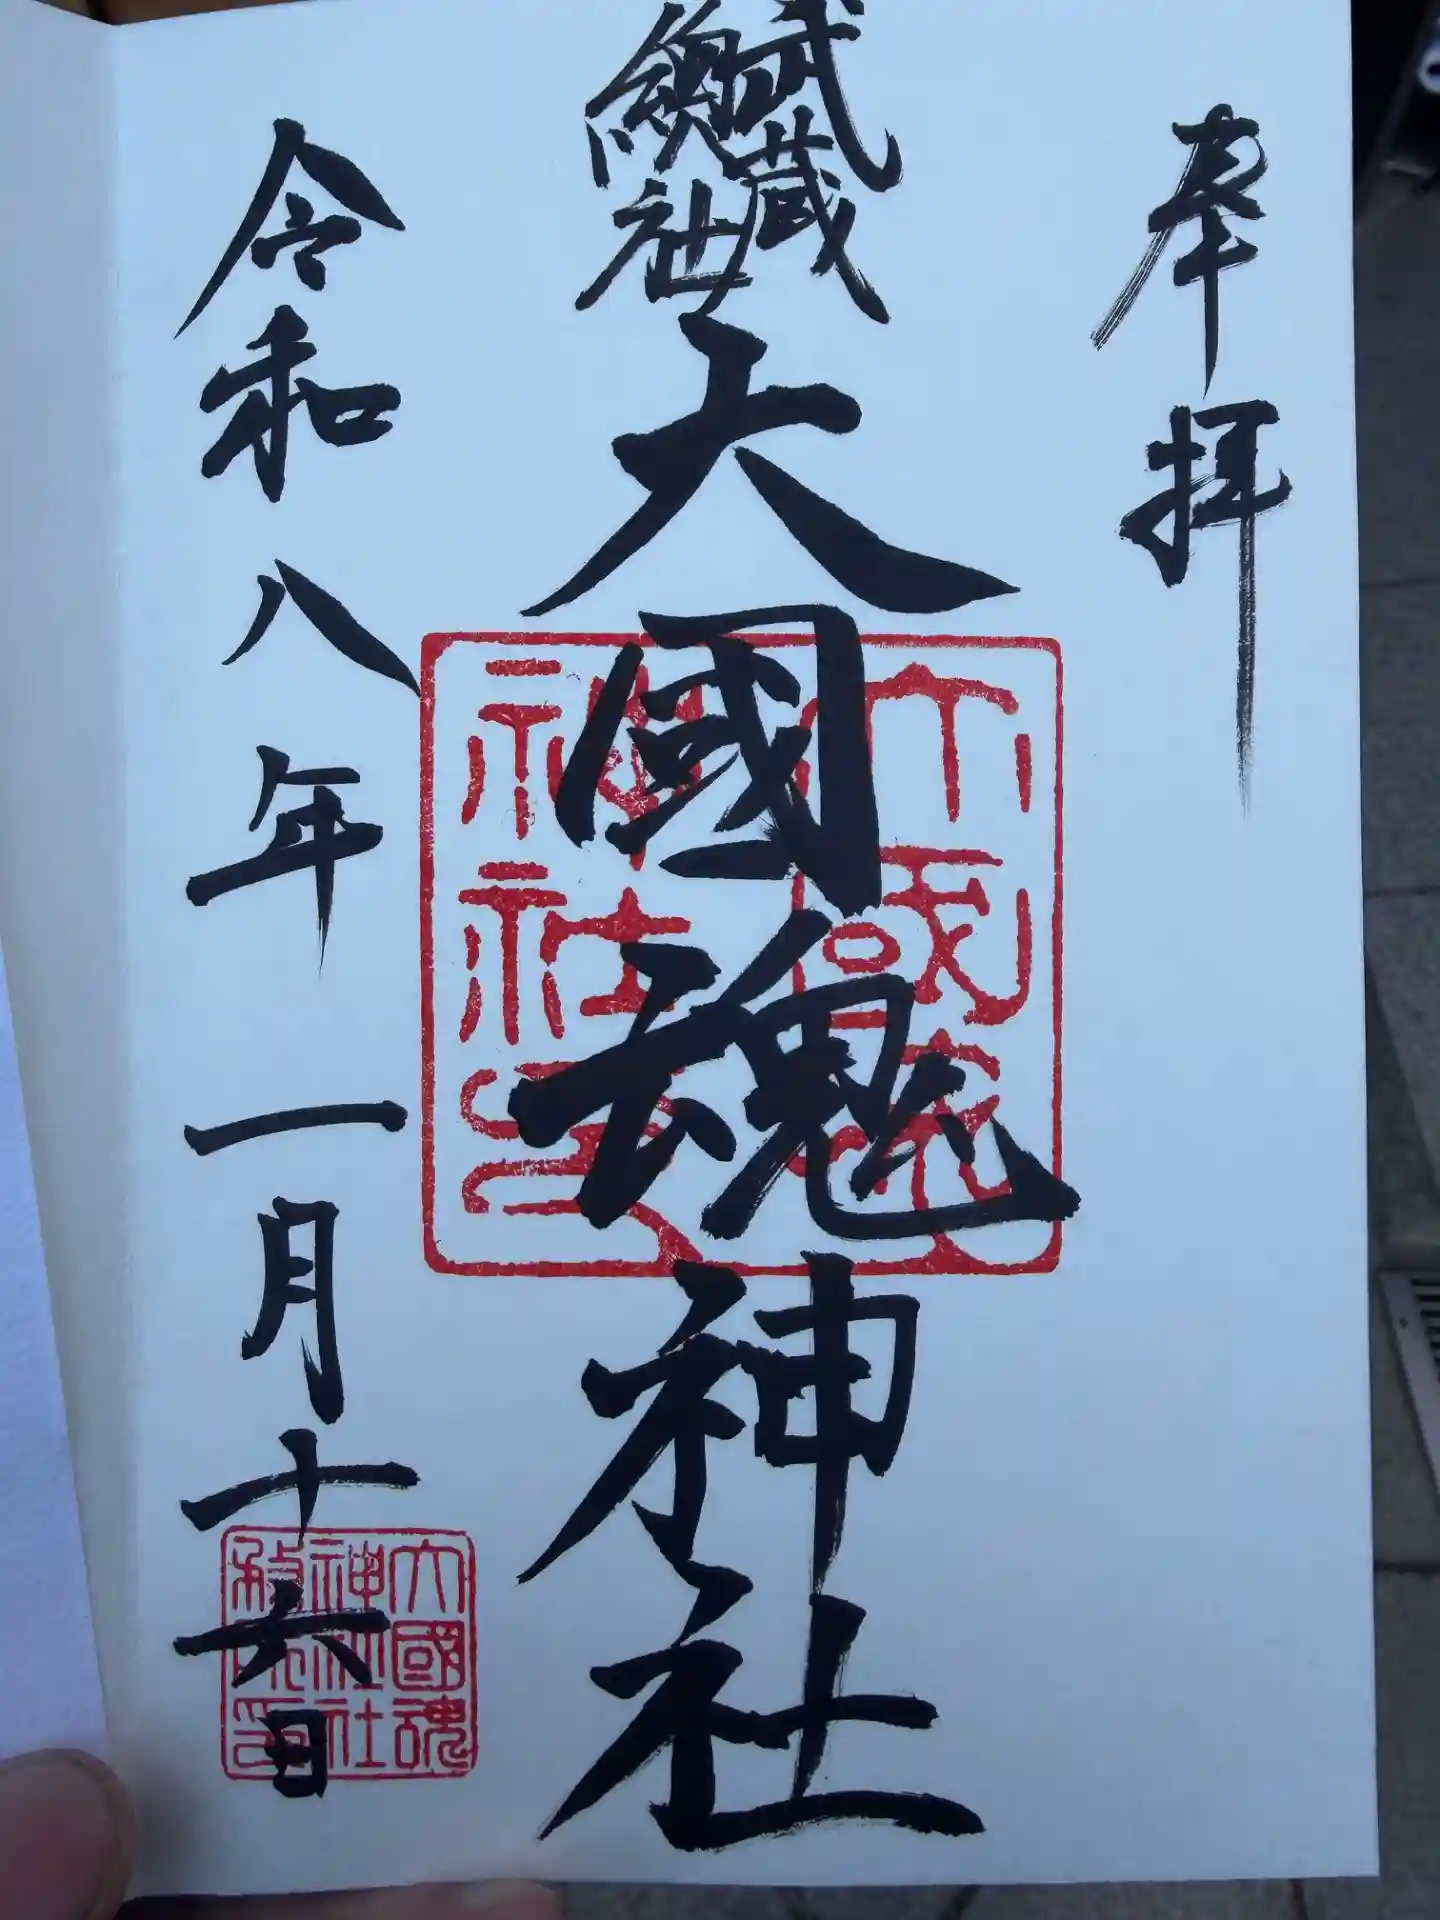 奉拝
武蔵
總社
大國魂神社
令和八年一月十六日
大國魂
神社印
大國魂
神社社
務所印